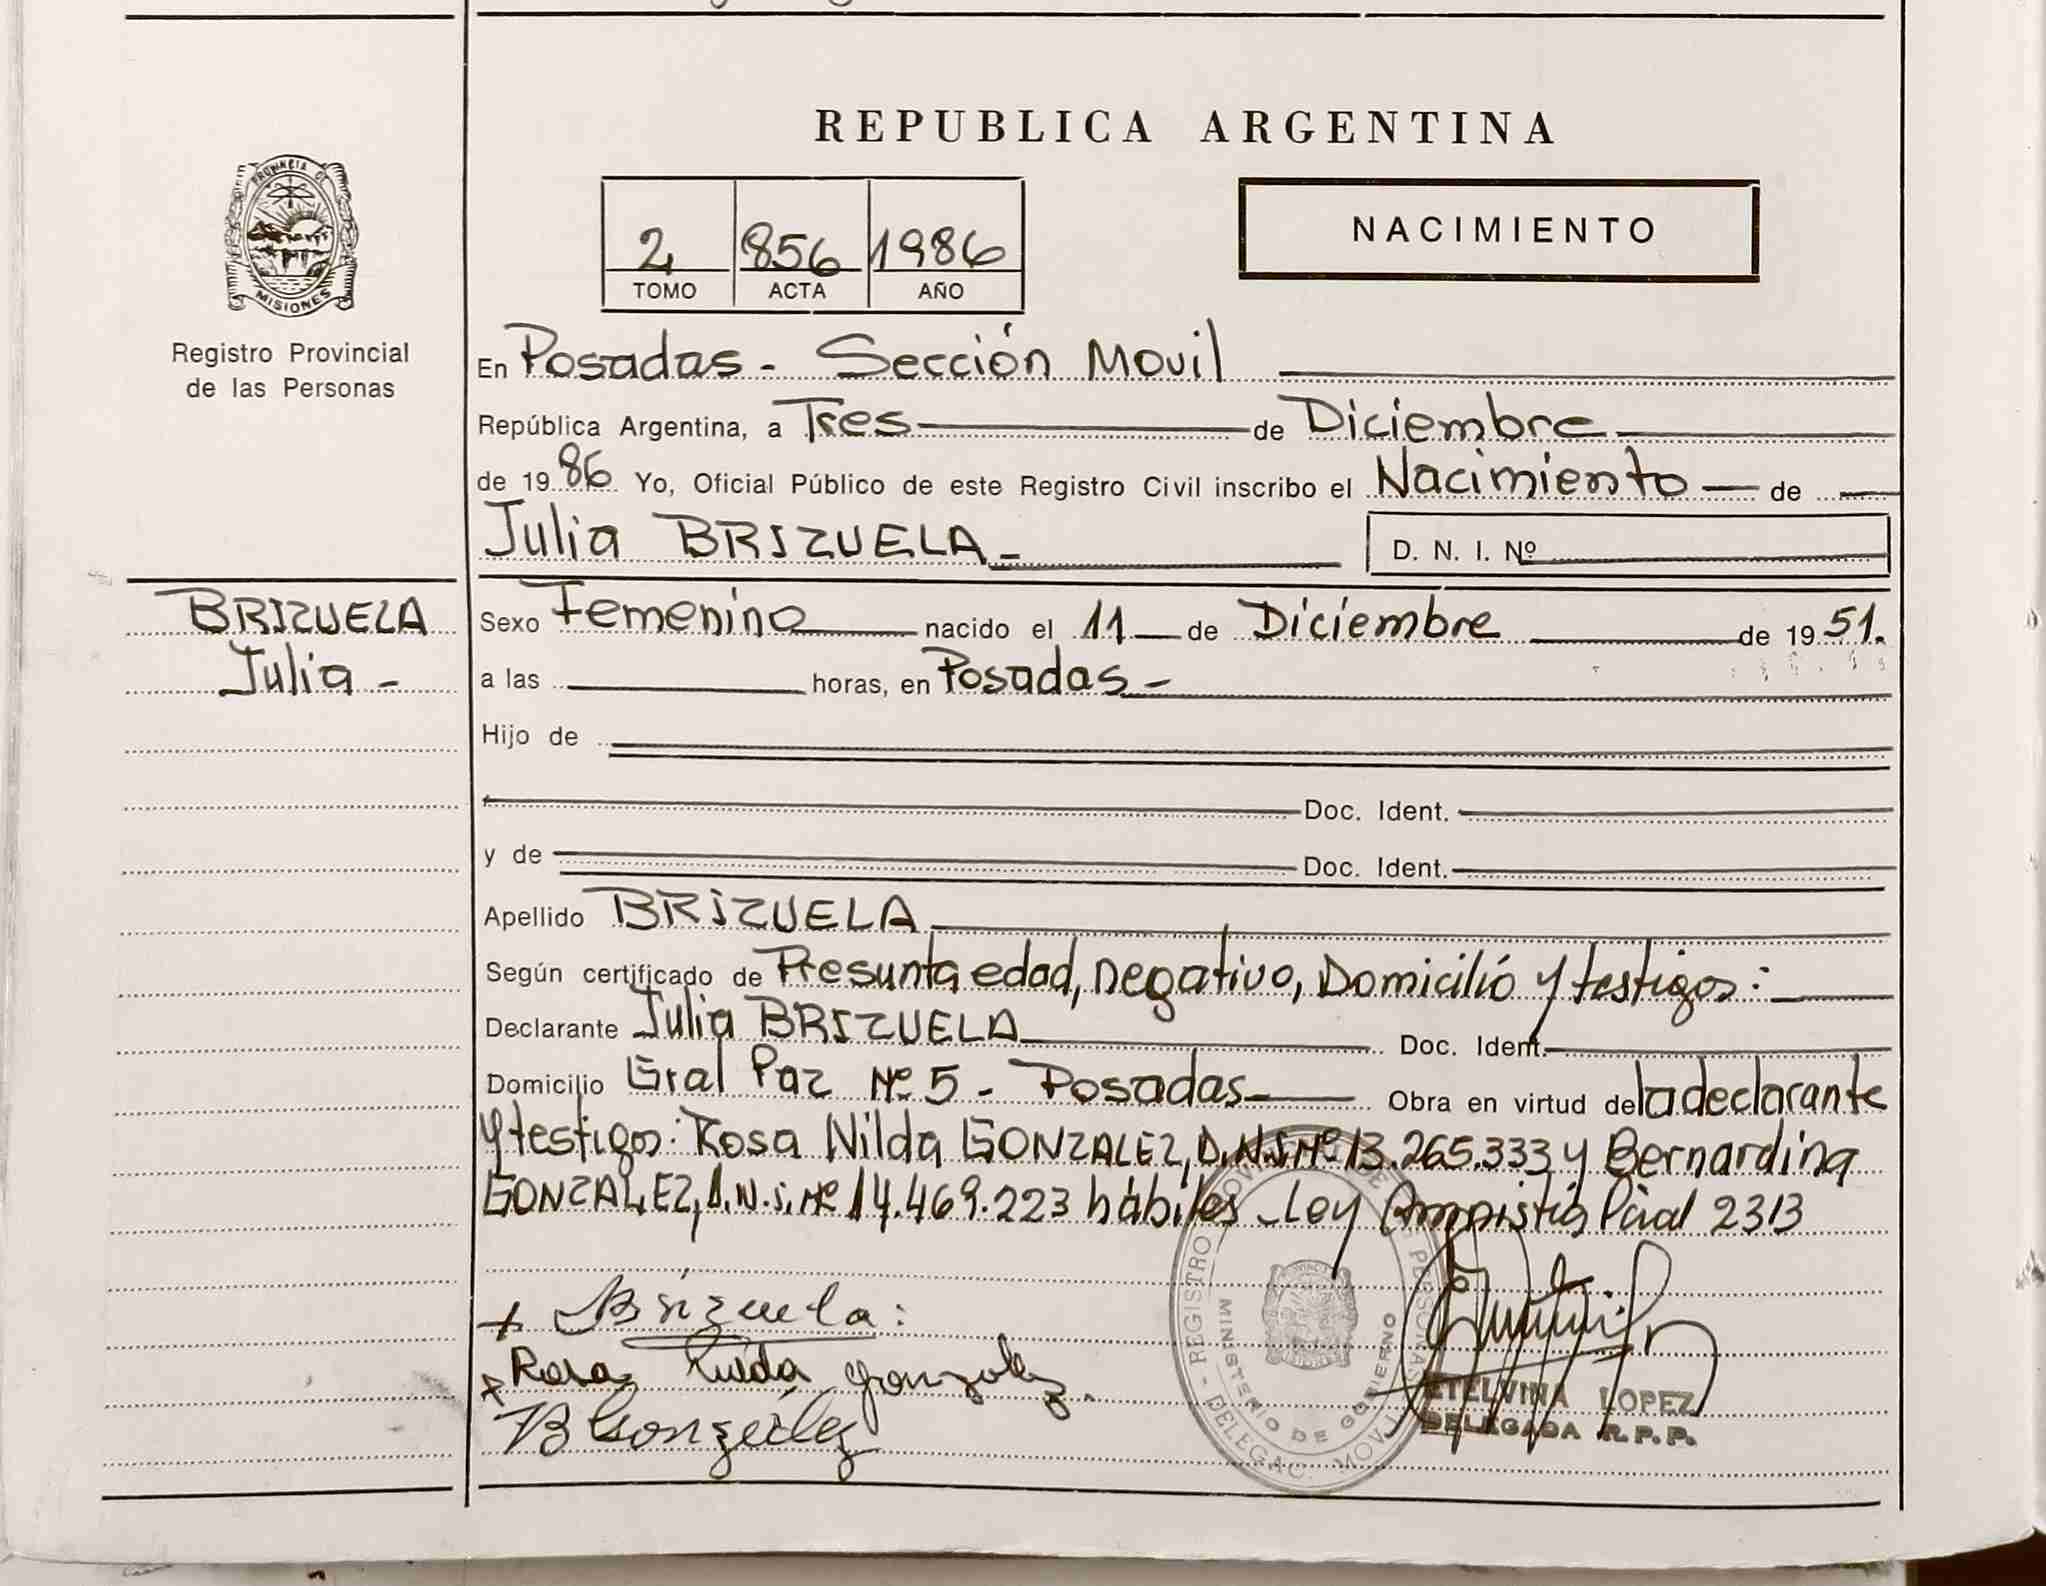 REPUBLICA ARGENTINA
PROVINCIA DE
MISIONES
Registro Provincial
de las Personas
2 856 1986
TOMO ACTA AÑO
NACIMIENTO
En Posadas - Sección Movil
República Argentina, a Tres de Diciembre
de 1986 Yo, Oficial Público de este Registro Civil inscribo el Nacimiento de
Julia BRIZUELA - D. N. I. Nº
BRIZUELA
Julia -
Sexo Femenino nacido el 11 de Diciembre de 1951.
a las horas, en Posadas -
Hijo de
Doc. Ident.
y de Doc. Ident.
Apellido BRIZUELA
Según certificado de Presunta edad, negativo, Domicilió y testigos:
Declarante Julia BRIZUELA Doc. Ident.
Domicilio Gral Paz Nº 5 - Posadas Obra en virtud de la declarante
y testigos: Rosa Nilda GONZALEZ, D.N.I Nº 13.265.333 y Bernardina
GONZALEZ, D.N.I. Nº 14.469.223 hábiles - Ley Amnistía Pcial 2313
Brizuela:
Rosa Nilda Gonzalez.
B Gonzalez
REGISTRO PROVINCIAL DE LAS PERSONAS
MINISTERIO DE GOBIERNO
DELEGAC. MOVIL
ETELVINA LOPEZ
DELEGADA R.P.P.